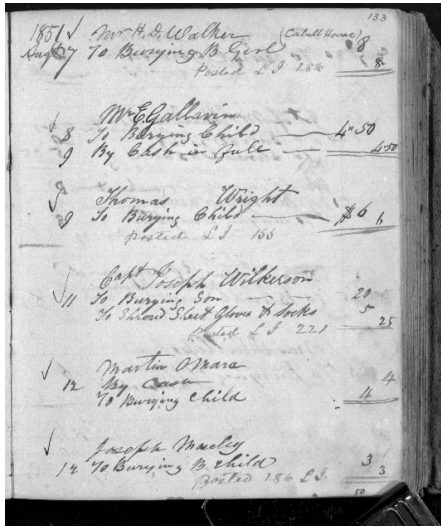 133
1851 ✓ Mr H. D. Walker (Cabell House)
Augt 7 To Burying B Girl 8
Posted L I 286 8
✓ Mr E. Gallavin
8 To Burying Child 4"50
9 By Cash in full 4.50
✓ Thomas Wright
8 To Burying Child $6 6
posted L I 155
Capt Joseph Wilkerson
✓ 11 To Burying Son 20
To Shroud Shert Gloves & Socks 5
Posted L I 221 25
✓ Martin OMara
12 By Cash 4
To Burying Child 4
✓ Joseph
12 To Burying B. Child 3
Posted 186 L I. 3
50